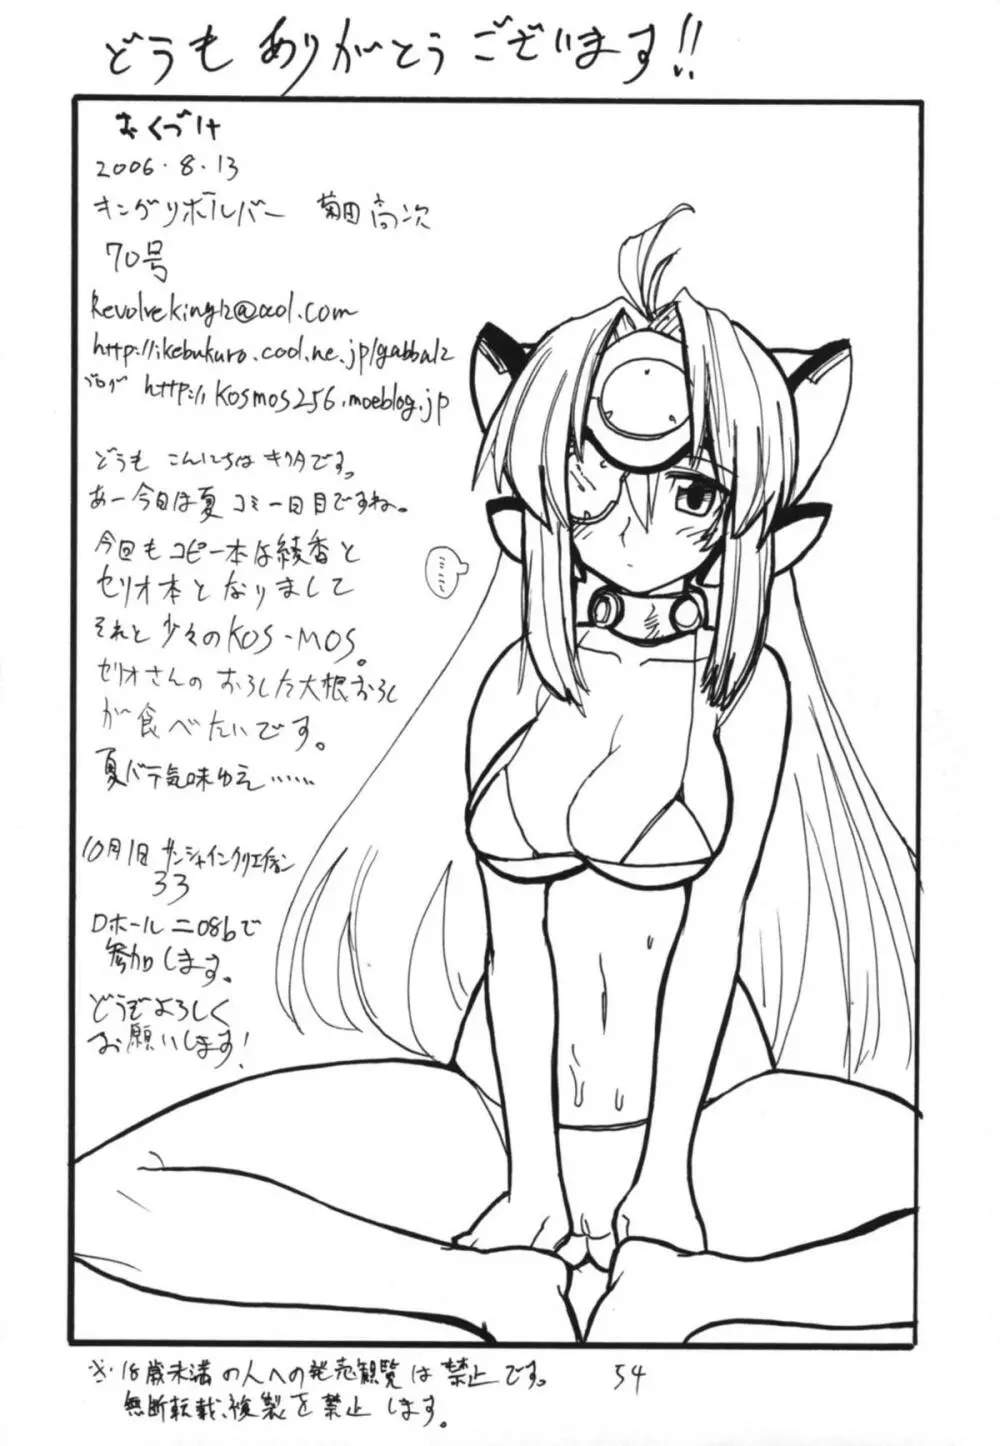 どうも ありがとうございます!!
おくづけ
2006・8・13
キングリボルバー 菊田高次
70号
Revolveking12@aol.com
http://ikebukuro.cool.ne.jp/gabba12
ブログ http://kosmos256.moeblog.jp
どうも こんにちは キクタです。
あー今日は夏コミ一日目ですね。
今回もコピー本は綾香と
セリオ本となりまして
それと少々のKOS-MOS。
セリオさんの おろした大根おろし
が食べたいです。
夏バテ気味ゆえ……
10月1日 サンシャインクリエイション
33
Dホール ニ08bで
参加します。
どうぞよろしく
お願いします!
ミミミ
※18歳未満の人への発売観覧は禁止です。
無断転載、複製を禁止します。
54